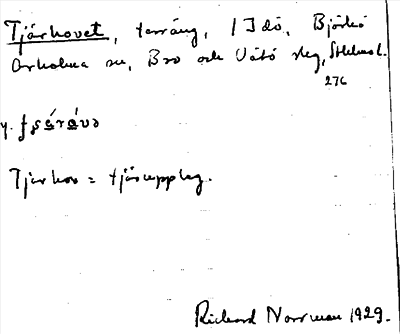 Tjärhovet, terräng, / Idö, Björkö
Arholma sn, Bro och Vätö skg, Sthlms l.
276
y.
Tjärhov = tjärupplag.
Richard Norrman 1929.